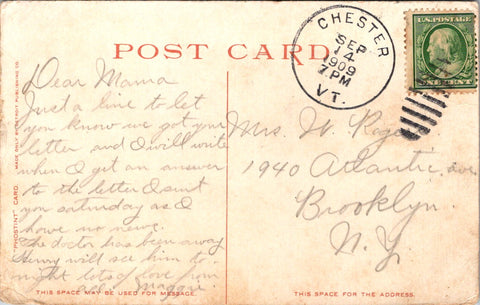 CHESTER
SEP
14
1909
7 PM
VT.
U.S. POSTAGE
POST CARD
"PHOSTINT" CARD. MADE ONLY BY DETROIT PUBLISHING CO.
Dear Mama
Just a line to let
you know we got your
letter and I will write
when I get an answer
to the letter I sent
you saturday as I
have no news.
The doctor has been away
will see him to
night lots of love from
all. Maggie
Mrs. W.
1940 Atlantic ave
Brooklyn
N.Y.
THIS SPACE MAY BE USED FOR MESSAGE.
THIS SPACE IS FOR THE ADDRESS.